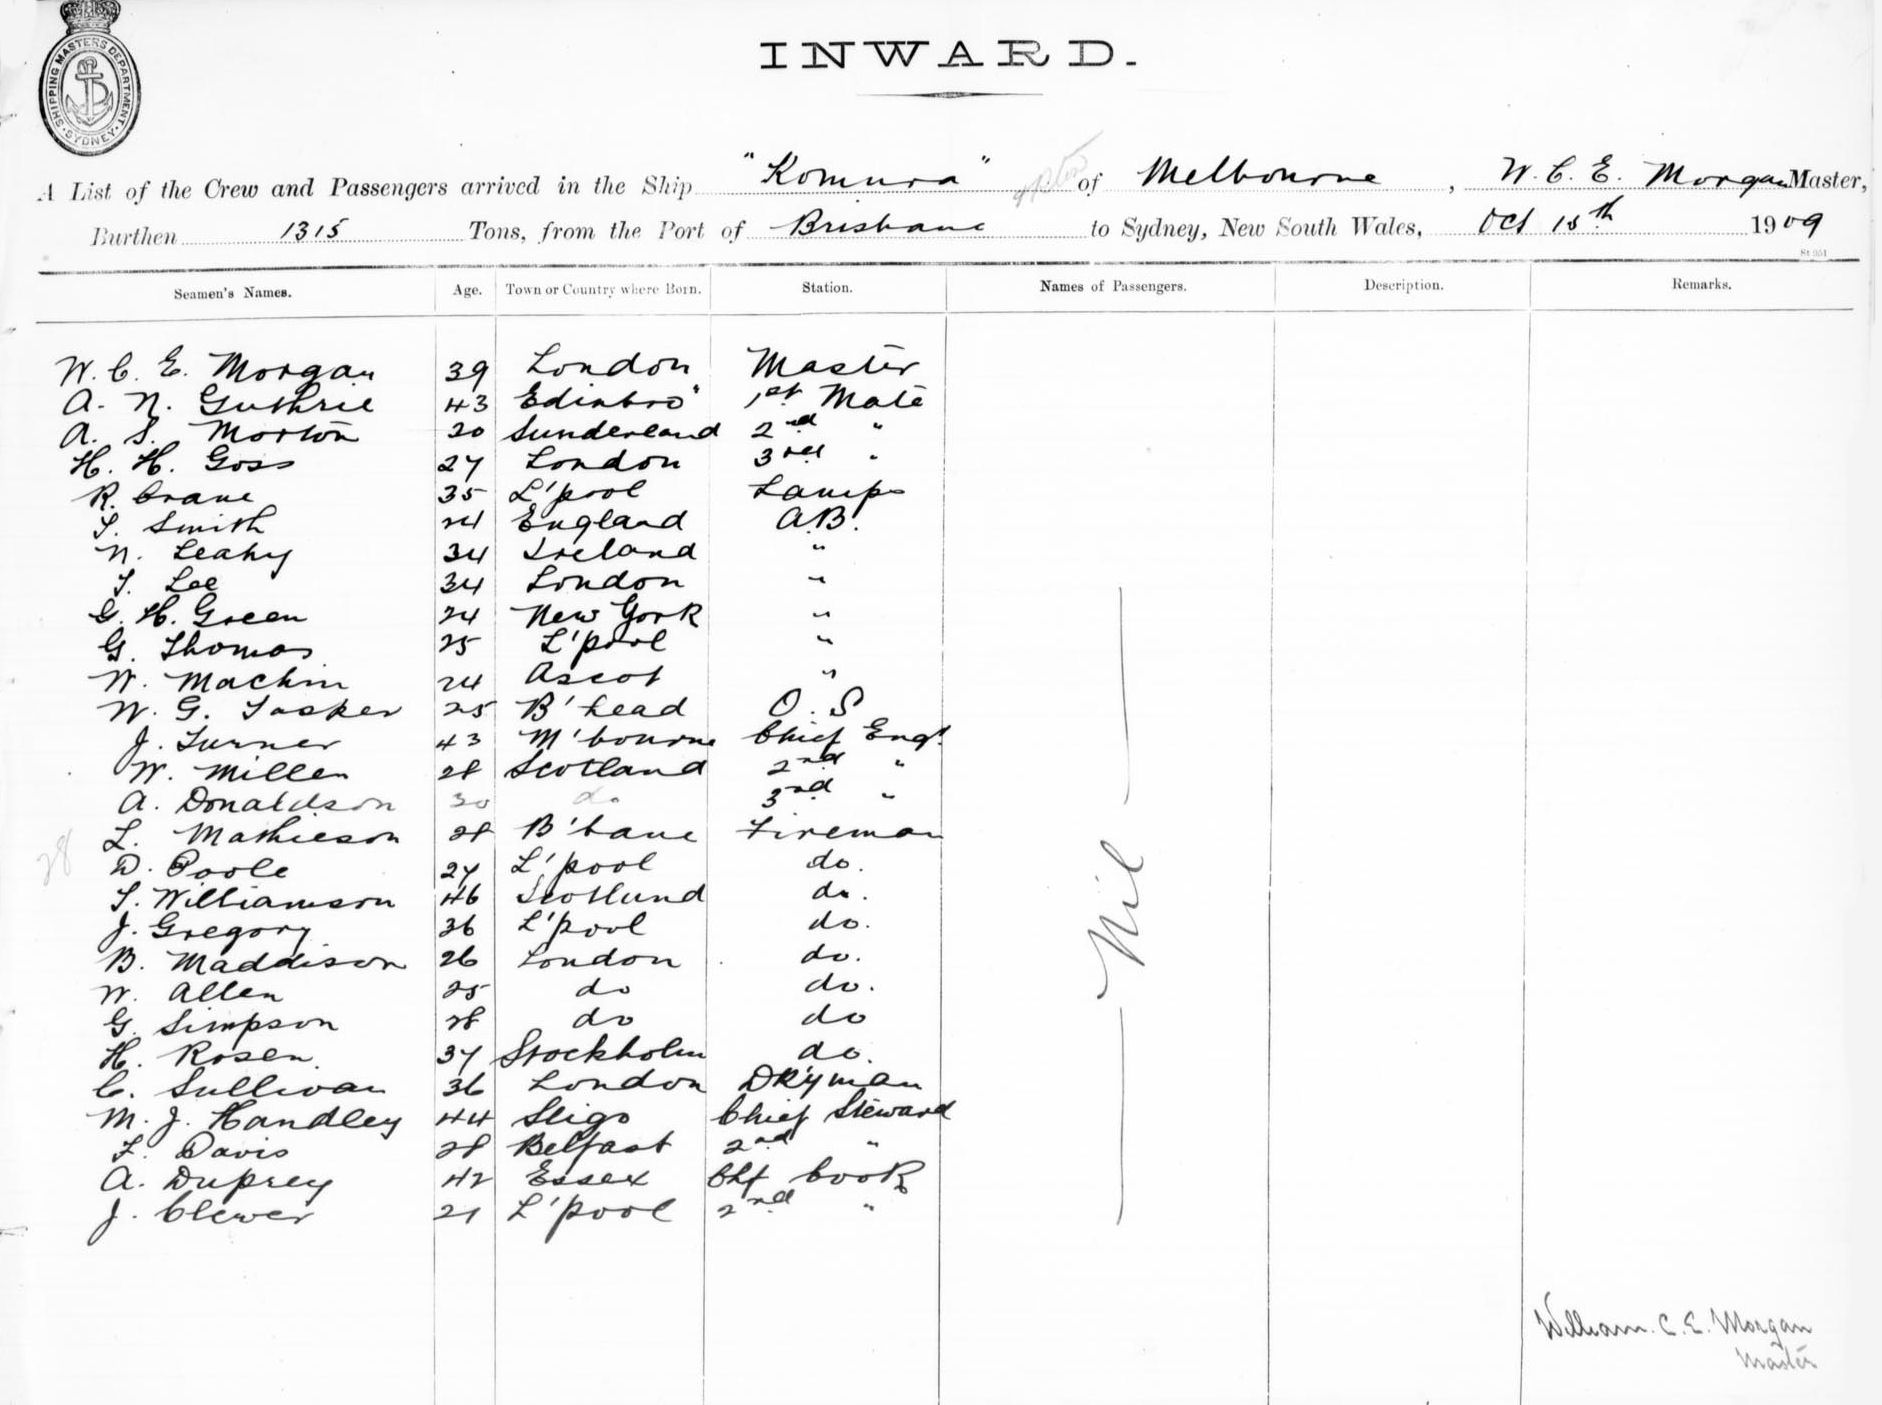 SHIPPING MASTERS DEPARTMENT. SYDNEY
INWARD.
A List of the Crew and Passengers arrived in the Ship "Komura" of Melbourne, W. C. E. Morgan Master,
Burthen 1315 Tons, from the Port of Brisbane to Sydney, New South Wales, Oct 15th 1909
St 951
Seamen's Names. Age. Town or Country where Born. Station. Names of Passengers. Description. Remarks.
W. C. E. Morgan 39 London Master
A. N. Guthrie 43 Edinbro' 1st Mate
A. S. Morton 20 Sunderland 2nd "
H. H. Goss 27 London 3rd "
R. Crane 35 L'pool Lamps
S. Smith 24 England A.B.
N. Leahy 34 Ireland "
T. Lee 34 London "
G. H. Green 24 New York "
G. Thomas 25 L'pool "
W. Machin 24 Ascot "
W. G. Tasker 25 B'head O. S
J. Turner 43 M'bourne Chief Engr
W. Miller 28 Scotland 2nd "
A. Donaldson 30 do 3rd "
L. Mathieson 28 B'bane Fireman
28
D. Poole 27 L'pool do.
T. Williamson 46 Scotland do.
J. Gregory 36 L'pool do.
B. Maddison 26 London do.
W. Allen 25 do do.
G. Simpson 28 do do
H. Rosen 37 Stockholm do.
C. Sullivan 36 London Dkyman
M. J. Handley 44 Sligo Chief Steward
F. Davis 28 Belfast 2nd "
A. Duprey 42 Essex Chf Cook
J. Clewer 21 L'pool 2nd "
Nil
William. C. E. Morgan
Master